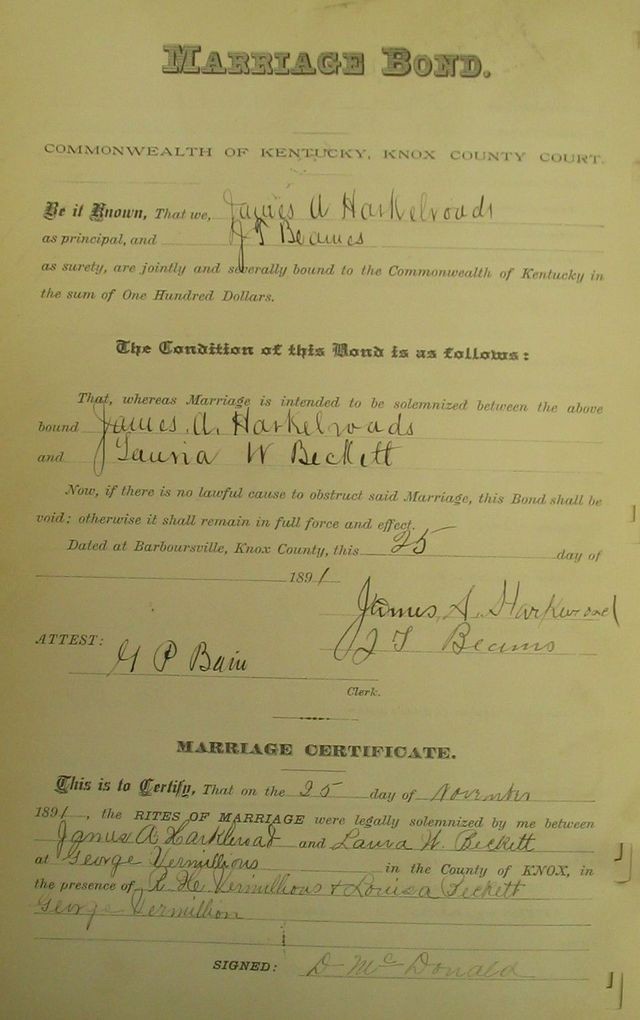 MARRIAGE BOND.
COMMONWEALTH OF KENTUCKY, KNOX COUNTY COURT.
Be it Known, That we, James A Harkelroads
as principal, and J T Beames
as surety, are jointly and severally bound to the Commonwealth of Kentucky in
the sum of One Hundred Dollars.
The Condition of this Bond is as follows:
That, whereas Marriage is intended to be solemnized between the above
bound James A. Harkelroads
and Lauria W Beckett
Now, if there is no lawful cause to obstruct said Marriage, this Bond shall be
void; otherwise it shall remain in full force and effect.
Dated at Barboursville, Knox County, this 25 day of
1891
James A. Harkwood
J T Beams
ATTEST:
G P Bain
Clerk.
MARRIAGE CERTIFICATE.
This is to Certify, That on the 25 day of November
1891, the RITES OF MARRIAGE were legally solemnized by me between
James A Harklroad and Laura W. Beckett
at George Vermillious in the County of KNOX, in
the presence of R. H. Vermillious & Louisa Beckett
George Vermillion
SIGNED: D McDonald